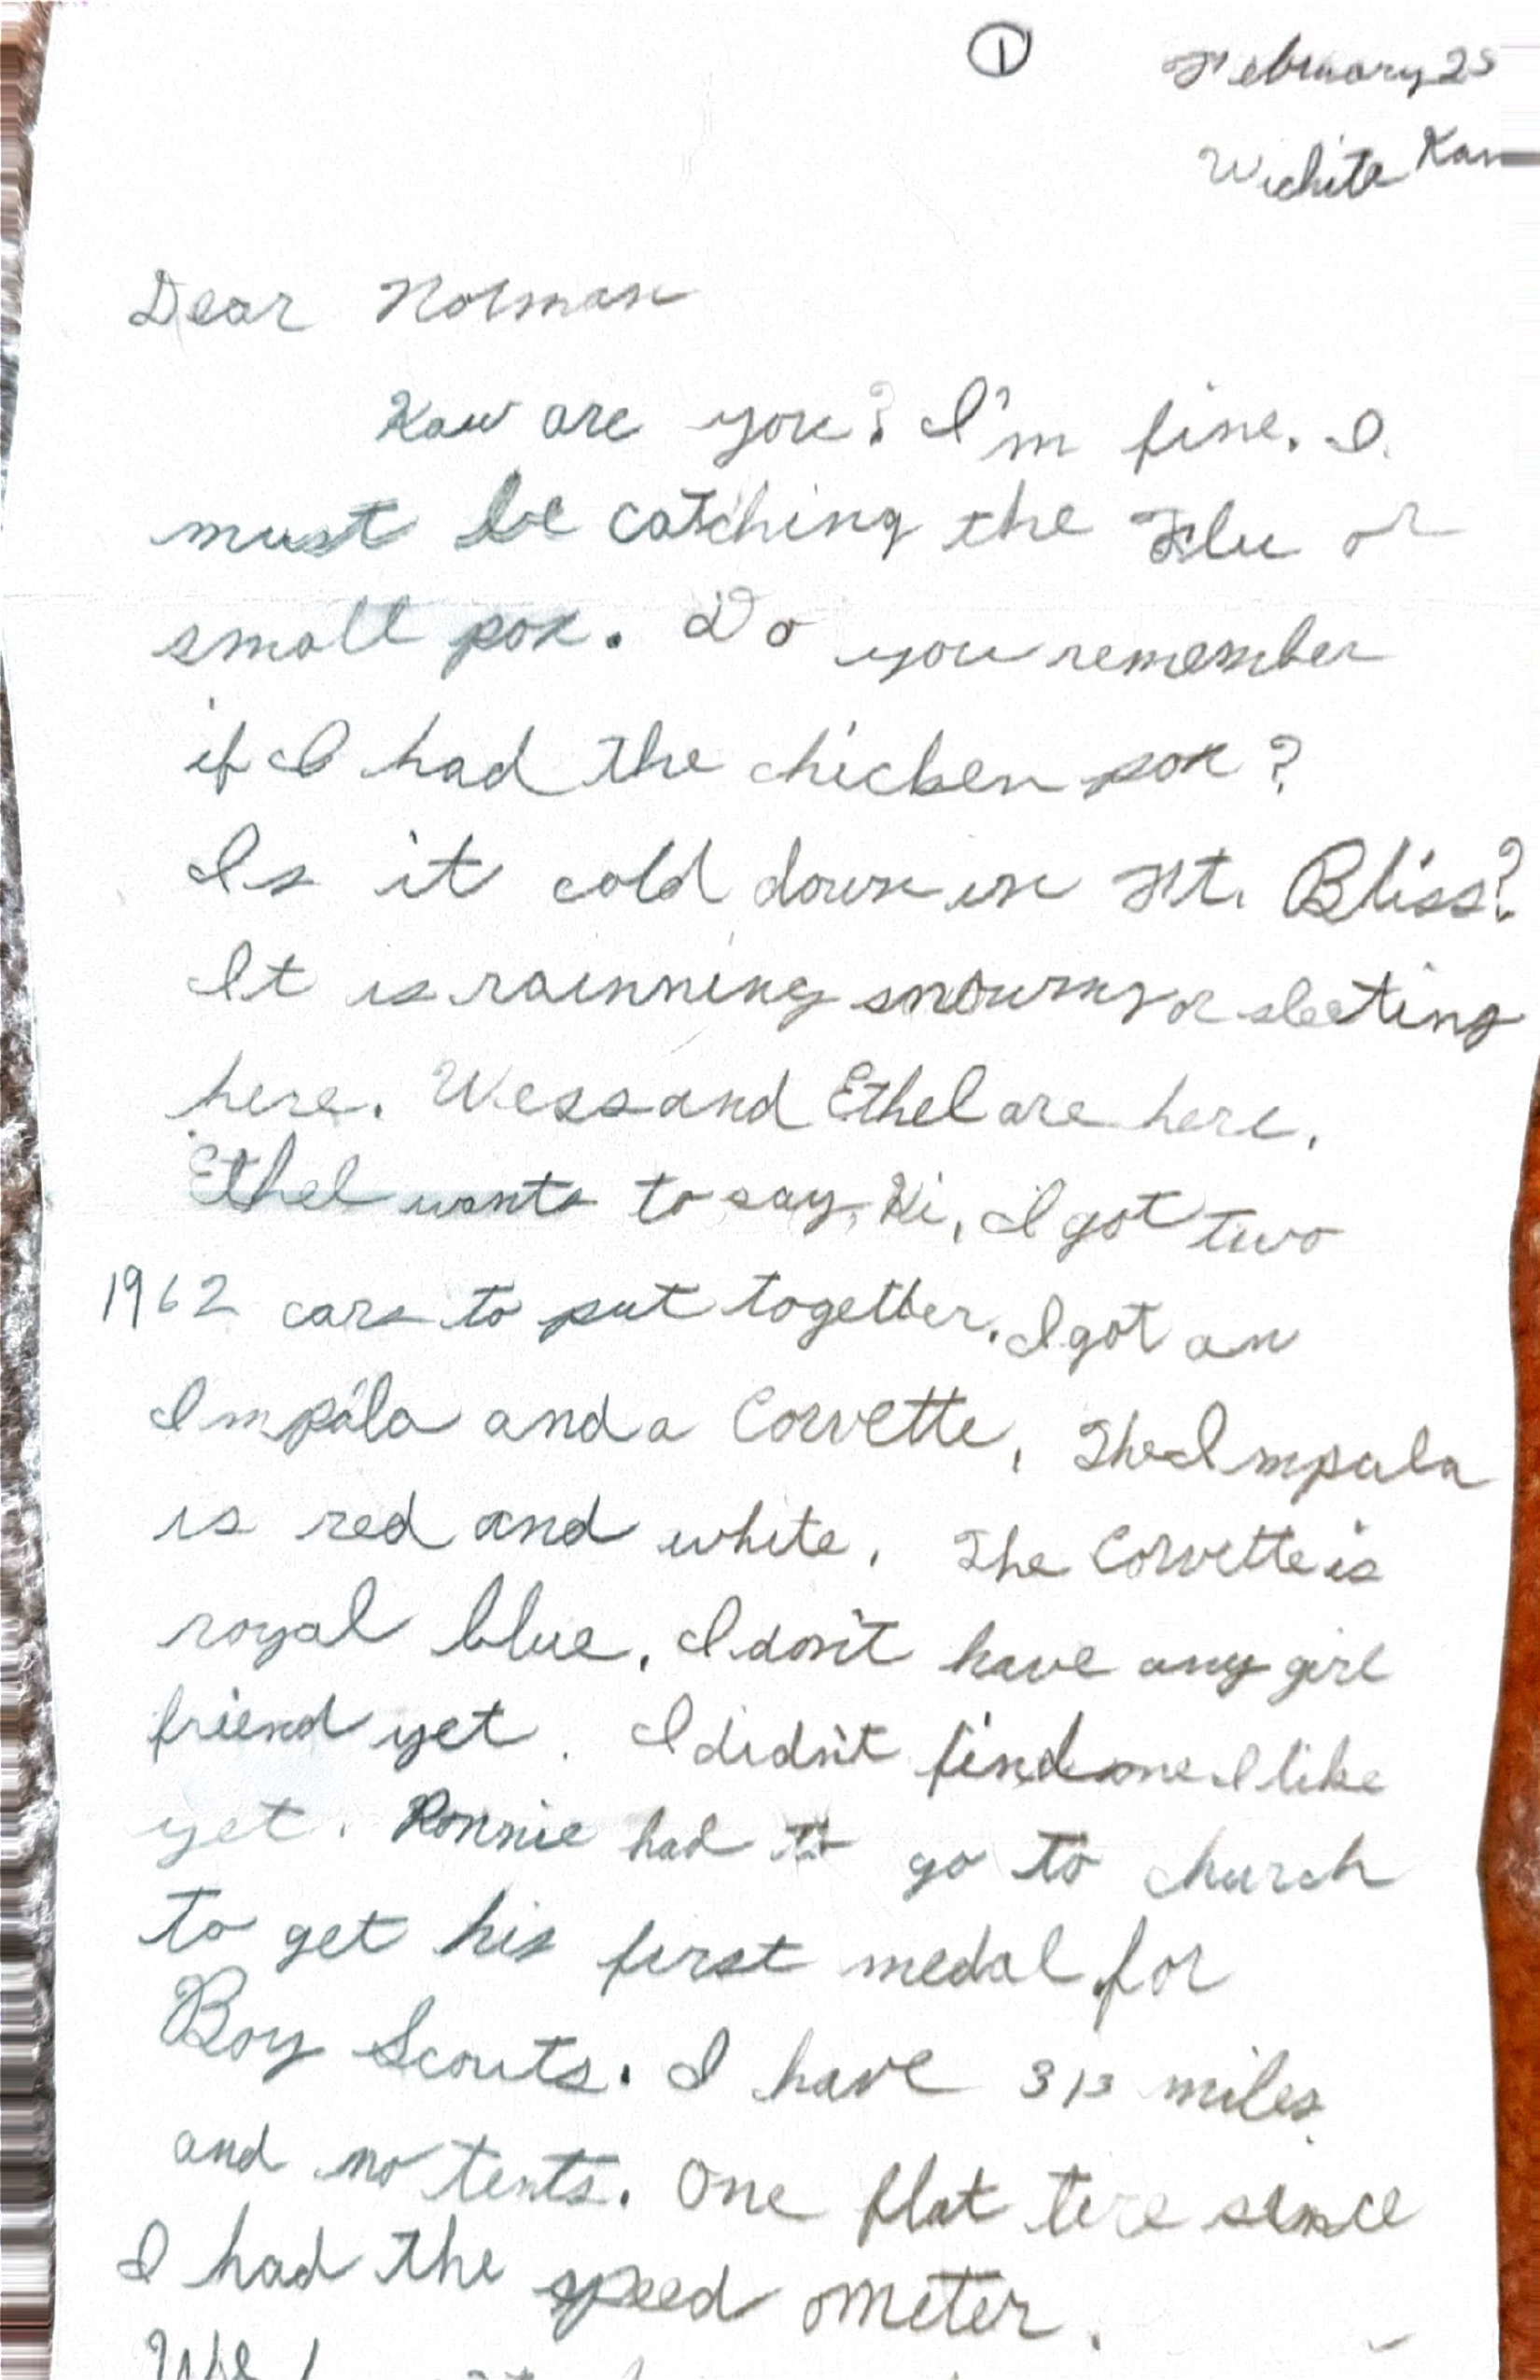 ①
February 25
Wichita Kan
Dear Norman
How are you? I'm fine. I
must be catching the Flu or
small pox. Do you remember
if I had the chicken pox?
Is it cold down in Ft. Bliss?
It is rainning snowing or sleeting
here. Wess and Ethel are here.
Ethel wants to say, Hi, I got two
1962 cars to put together. I got an
Impala and a Corvette, The Impala
is red and white. The Corvette is
royal blue. I don't have any girl
friend yet. I didn't find one I like
yet. Ronnie had to go to church
to get his first medal for
Boy Scouts. I have 313 miles
and no tents. One flat tire since
I had the speed ometer.